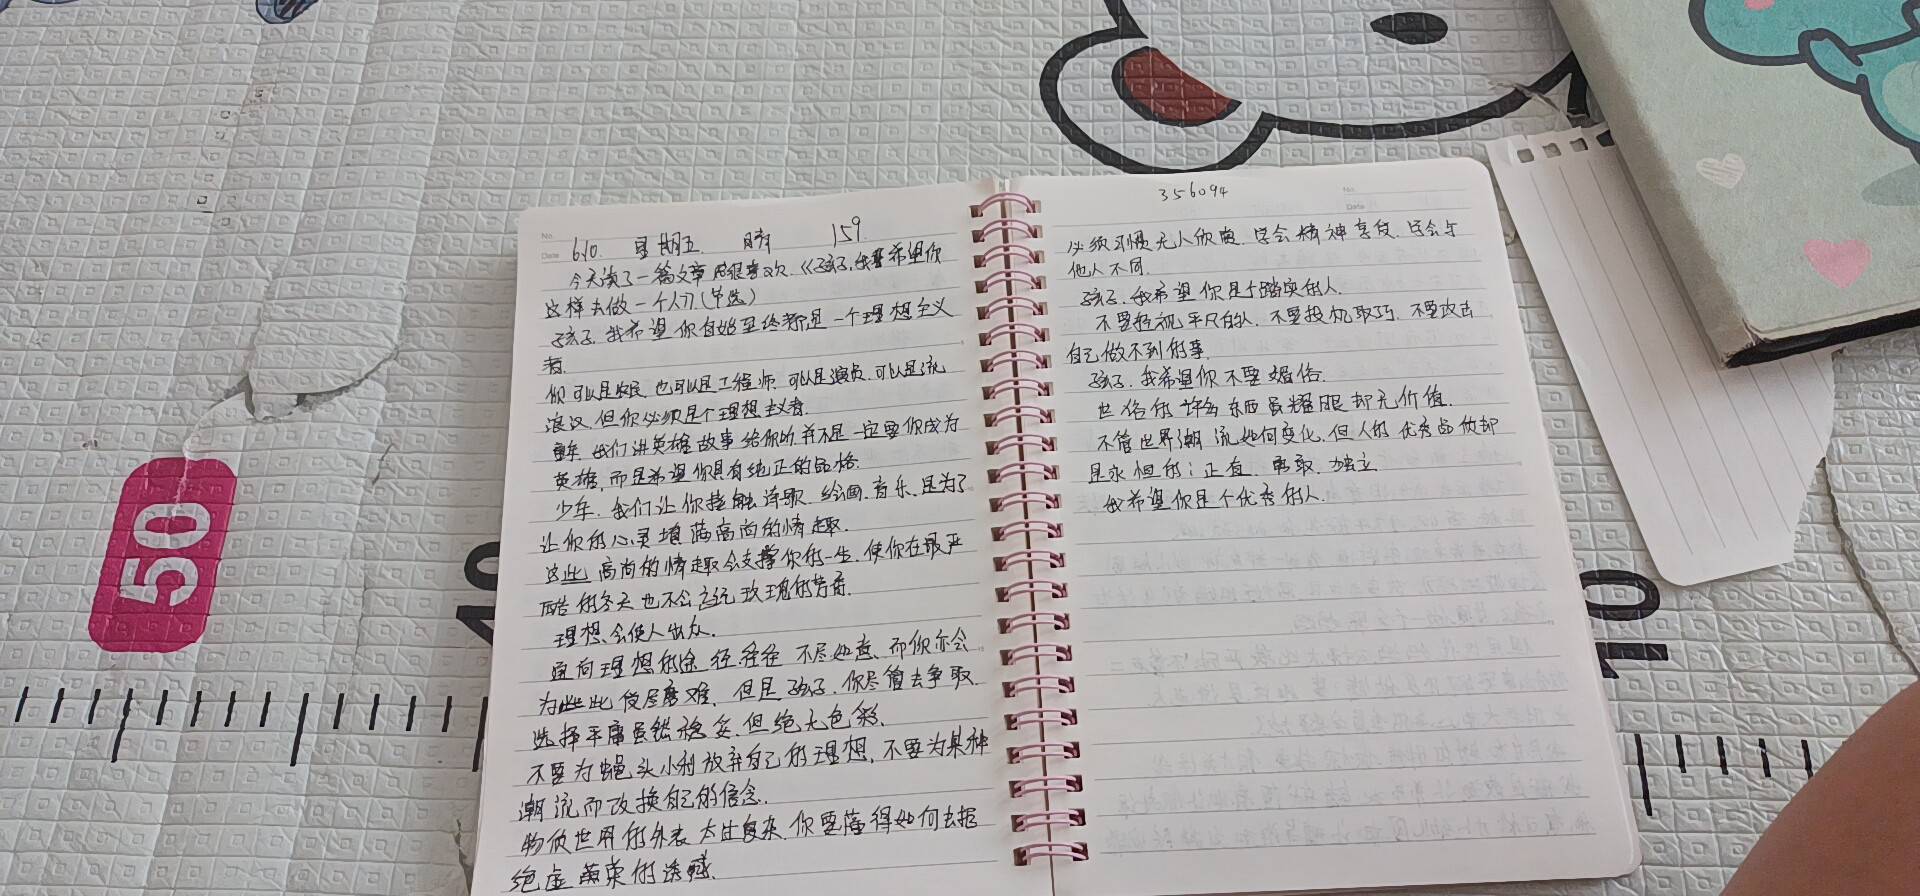 6.10. 星期五 晴 159
今天读了一篇文章 很喜欢.《孩子,我希望你
这样去做一个人》(节选)
孩子.我希望你自始至终都是一个理想主义
者.
你可以是农民 也可以是工程师 可以是演员.可以是流
浪汉 但你必须是个理想主义者.
童年 我们讲英雄故事给你听 并不是一定要你成为
英雄,而是希望你具有纯正的品格.
少年.我们让你接触诗歌.绘画.音乐.是为了
让你的心灵填满高尚的情趣.
这些高尚的情趣会支撑你的一生.使你在最严
酷的冬天也不会忘记玫瑰的芳香.
理想会使人出众.
通向理想的途径往往不尽如意、而你亦会
为此 受尽磨难. 但是 孩子.你尽管去争取.
选择平庸虽然稳妥.但绝无色彩.
不要为蝇头小利放弃自己的理想.不要为某种
潮流而改换自己的信念.
物质世界的外表太过复杂.你要懂得如何去拒
绝虚荣的诱惑.
356094
必须习惯无人欣赏.学会精神享受.学会与
他人不同.
孩子.我希望你是个踏实的人.
不要轻视平凡的人.不要投机取巧.不要攻击
自己做不到的事.
孩子.我希望你不要媚俗.
世俗的许多东西虽耀眼却无价值.
不管世界潮流如何变化.但人的优秀品质却
是永恒的:正直.勇敢.独立
我希望你是个优秀的人.
50